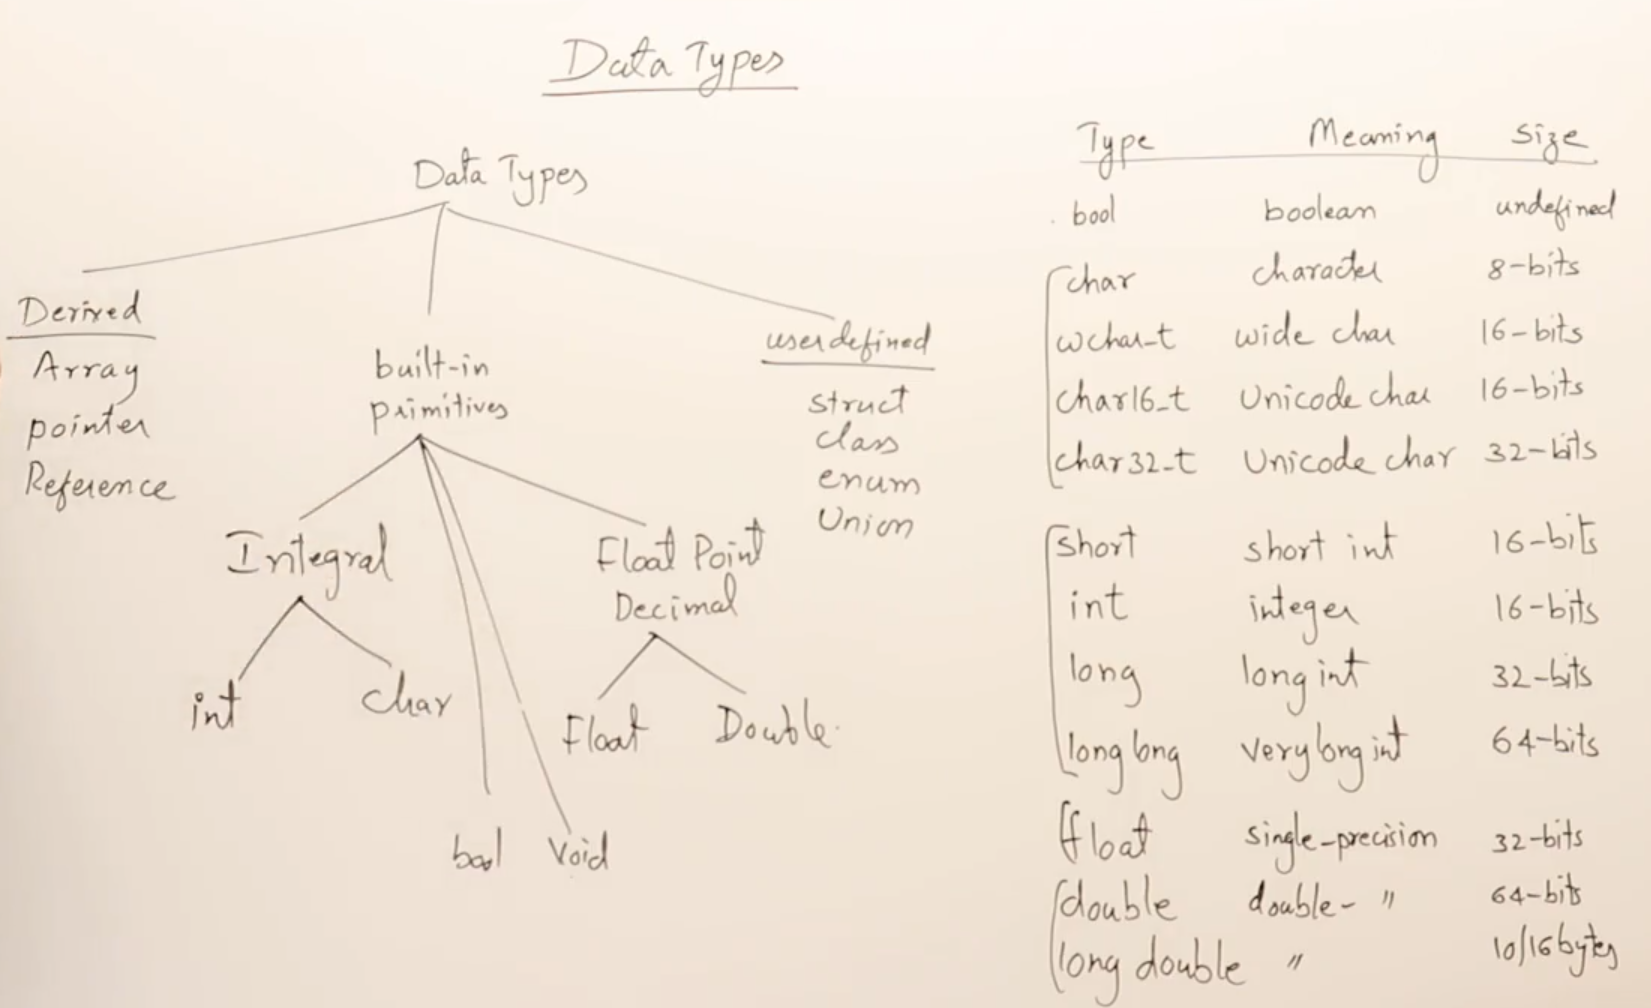 Data Types
Data Types
Derived
Array
pointer
Reference
built-in
primitives
userdefined
struct
class
enum
Union
Integral
int
char
Float Point
Decimal
Float
Double
bool
void
Type Meaning Size
bool boolean undefined
char character 8-bits
wchar_t wide char 16-bits
char16_t Unicode char 16-bits
char32_t Unicode char 32-bits
short short int 16-bits
int integer 16-bits
long long int 32-bits
long long very long int 64-bits
float single-precision 32-bits
double double- " 64-bits
long double " 10/16 bytes